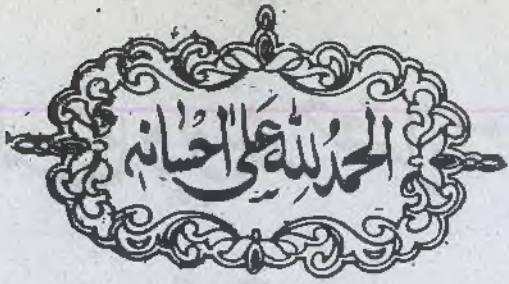 الحمدُ لله عَلى احْسَانه